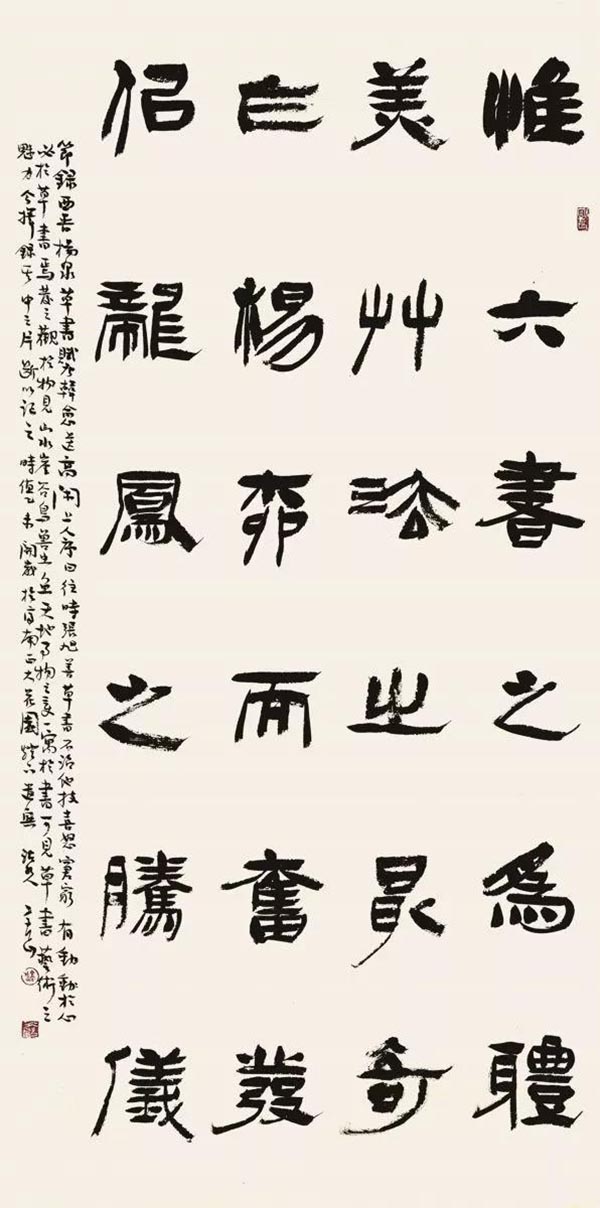 惟六書之為體
美艸法之最奇
乍楊柳而奮發
佀龍鳳之騰儀
節錄西晉楊泉草書賦韓愈送高閑上人序曰往時張旭善草書不治他技喜怒窘窮有動於心
必於草書焉發之觀於物見山水崖谷鳥獸虫魚天地事物之變一寓於書可見草書藝術之
魅力今擇錄其中之片斷以記之時值乙未開歲於濟南正大花園